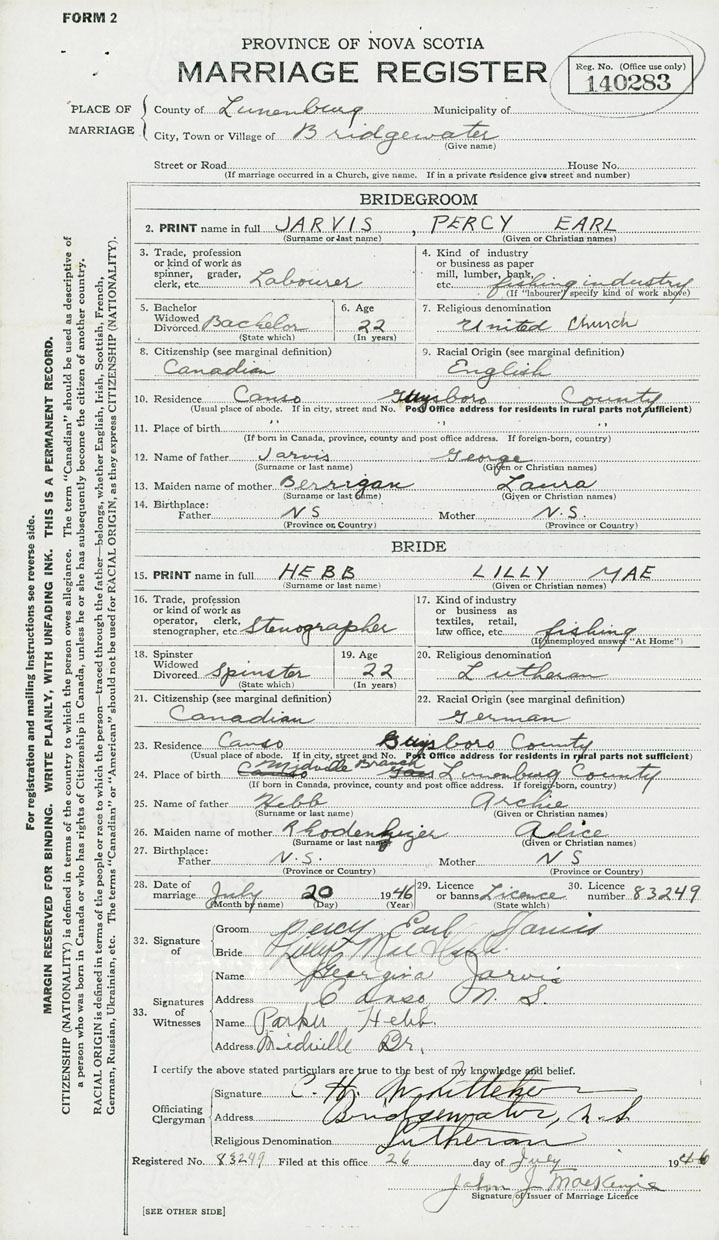 FORM 2
PROVINCE OF NOVA SCOTIA
MARRIAGE REGISTER
Reg. No. (Office use only)
140283
PLACE OF MARRIAGE
County of Lunenburg Municipality of
City, Town or Village of Bridgewater
(Give name)
Street or Road House No.
(If marriage occurred in a Church, give name. If in a private residence give street and number)
BRIDEGROOM
2. PRINT name in full JARVIS, PERCY EARL
(Surname or last name) (Given or Christian names)
3. Trade, profession or kind of work as spinner, grader, clerk, etc. Labourer
4. Kind of industry or business as paper mill, lumber, bank, etc. fishing industry
(If "labourer" specify kind of work above)
5. Bachelor Widowed Divorced Bachelor
(State which)
6. Age 22
(In years)
7. Religious denomination
United Church
8. Citizenship (see marginal definition)
Canadian
9. Racial Origin (see marginal definition)
English
10. Residence Canso Guysboro County
(Usual place of abode. If in city, street and No. Post Office address for residents in rural parts not sufficient)
11. Place of birth " " "
(If born in Canada, province, county and post office address. If foreign-born, country)
12. Name of father Jarvis George
(Surname or last name) (Given or Christian names)
13. Maiden name of mother Berrigan Laura
(Surname or last name) (Given or Christian names)
14. Birthplace:
Father NS Mother N.S.
(Province or Country) (Province or Country)
BRIDE
15. PRINT name in full HEBB LILLY MAE
(Surname or last name) (Given or Christian names)
16. Trade, profession or kind of work as operator, clerk, stenographer, etc. Stenographer
17. Kind of industry or business as textiles, retail, law office, etc. fishing
(If unemployed answer "At Home")
18. Spinster Widowed Divorced Spinster
(State which)
19. Age 22
(In years)
20. Religious denomination
Lutheran
21. Citizenship (see marginal definition)
Canadian
22. Racial Origin (see marginal definition)
German
23. Residence Canso Guysboro County
(Usual place of abode. If in city, street and No. Post Office address for residents in rural parts not sufficient)
24. Place of birth Canso Midville Branch Lunenburg County
(If born in Canada, province, county and post office address. If foreign-born, country)
25. Name of father Hebb Archie
(Surname or last name) (Given or Christian names)
26. Maiden name of mother Rhodenhizer Alice
(Surname or last name) (Given or Christian names)
27. Birthplace:
Father N.S. Mother NS
(Province or Country) (Province or Country)
28. Date of marriage July 20 1946
(Month by name) (Day) (Year)
29. Licence or banns Licence
(State which)
30. Licence number 83249
32. Signature of
Groom Percy Earl Jarvis
Bride Lilly Mae Hebb
33. Signatures of Witnesses
Name Georgina Jarvis
Address Canso N.S.
Name Parker Hebb.
Address Midville Br.
I certify the above stated particulars are true to the best of my knowledge and belief.
Officiating Clergyman
Signature C. H. Whitteker
Address Bridgewater, N.S
Religious Denomination Lutheran
Registered No. 83249 Filed at this office 26 day of July 1946
John J MacKenzie
Signature of Issuer of Marriage Licence
[SEE OTHER SIDE]
For registration and mailing instructions see reverse side.
MARGIN RESERVED FOR BINDING. WRITE PLAINLY, WITH UNFADING INK. THIS IS A PERMANENT RECORD.
CITIZENSHIP (NATIONALITY) is defined in terms of the country to which the person owes allegiance. The term "Canadian" should be used as descriptive of
a person who was born in Canada or who has rights of Citizenship in Canada, unless he or she has subsequently become the citizen of another country.
RACIAL ORIGIN is defined in terms of the people or race to which the person—traced through the father—belongs, whether English, Irish, Scottish, French,
German, Russian, Ukrainian, etc. The terms "Canadian" or "American" should not be used for RACIAL ORIGIN, as they express CITIZENSHIP (NATIONALITY).